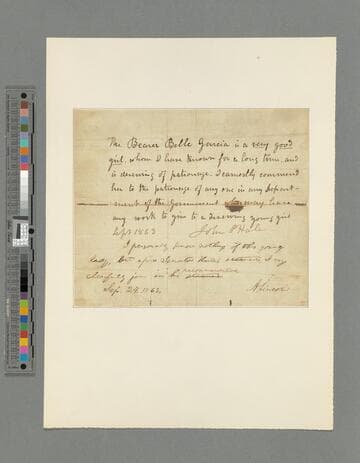 The Bearer Belle Garcia is a very good
girl, whom I have known for a long time, and
is deserving of patronage. I earnestly commend
her to the patronage of any one in any Depart-
ment of the Government who may have
any work to give to a deserving young girl
Sept 1863 John P Hale
I personally know nothing of this young
lady, but upon Senator Hale's I very
cheerfully join in his recommendation
Sep. 24. 1863. A. Lincoln